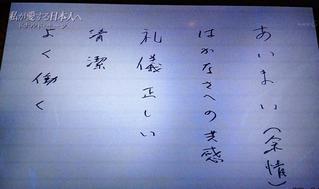 私が愛する日本人へ
ドナルド・キーン
あいまい(余情)
はかなさへの共感
礼儀正しい
清潔
よく働く